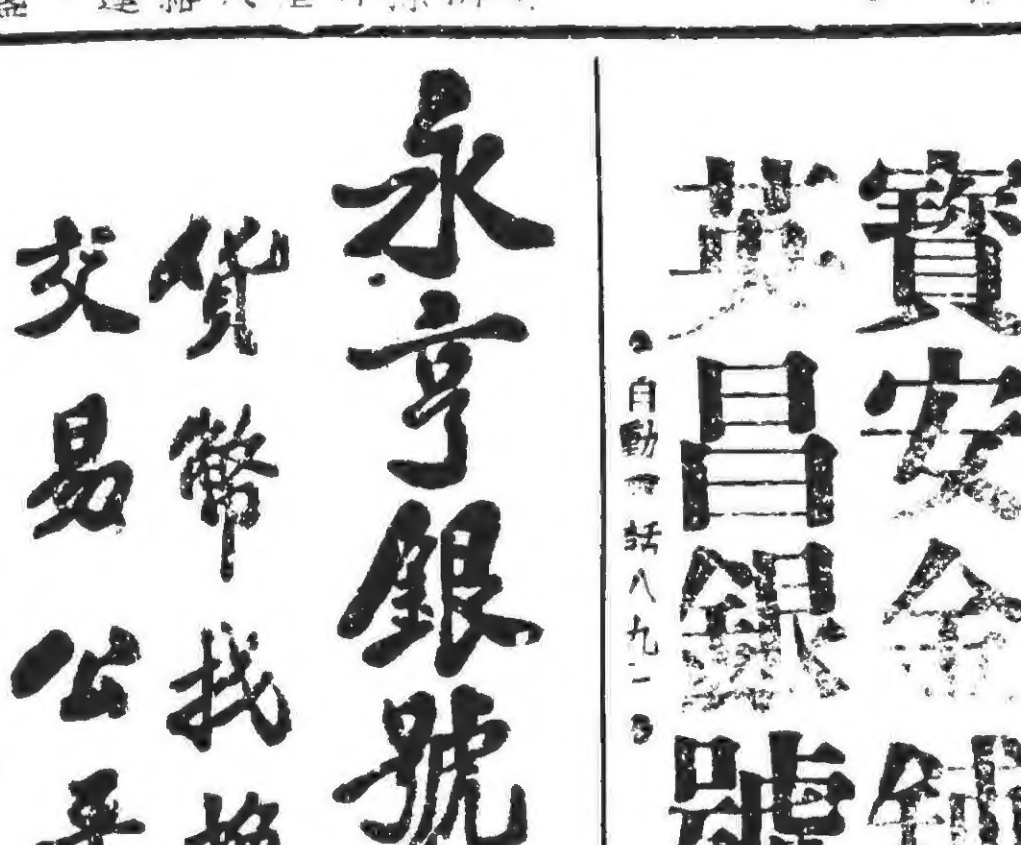 寶安金鋪
英昌銀號
自動電話八九二
永亨銀號
貨幣找換
交易公平